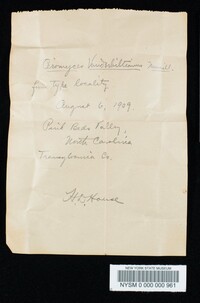 Aronyces Vanderbiltianus Murrill.
from Type locality
August 6, 1909
Pink Beds Valley,
North Carolina
Transylvania Co.
H. D. House
NEW YORK STATE MUSEUM
NYSM 0 000 000 961